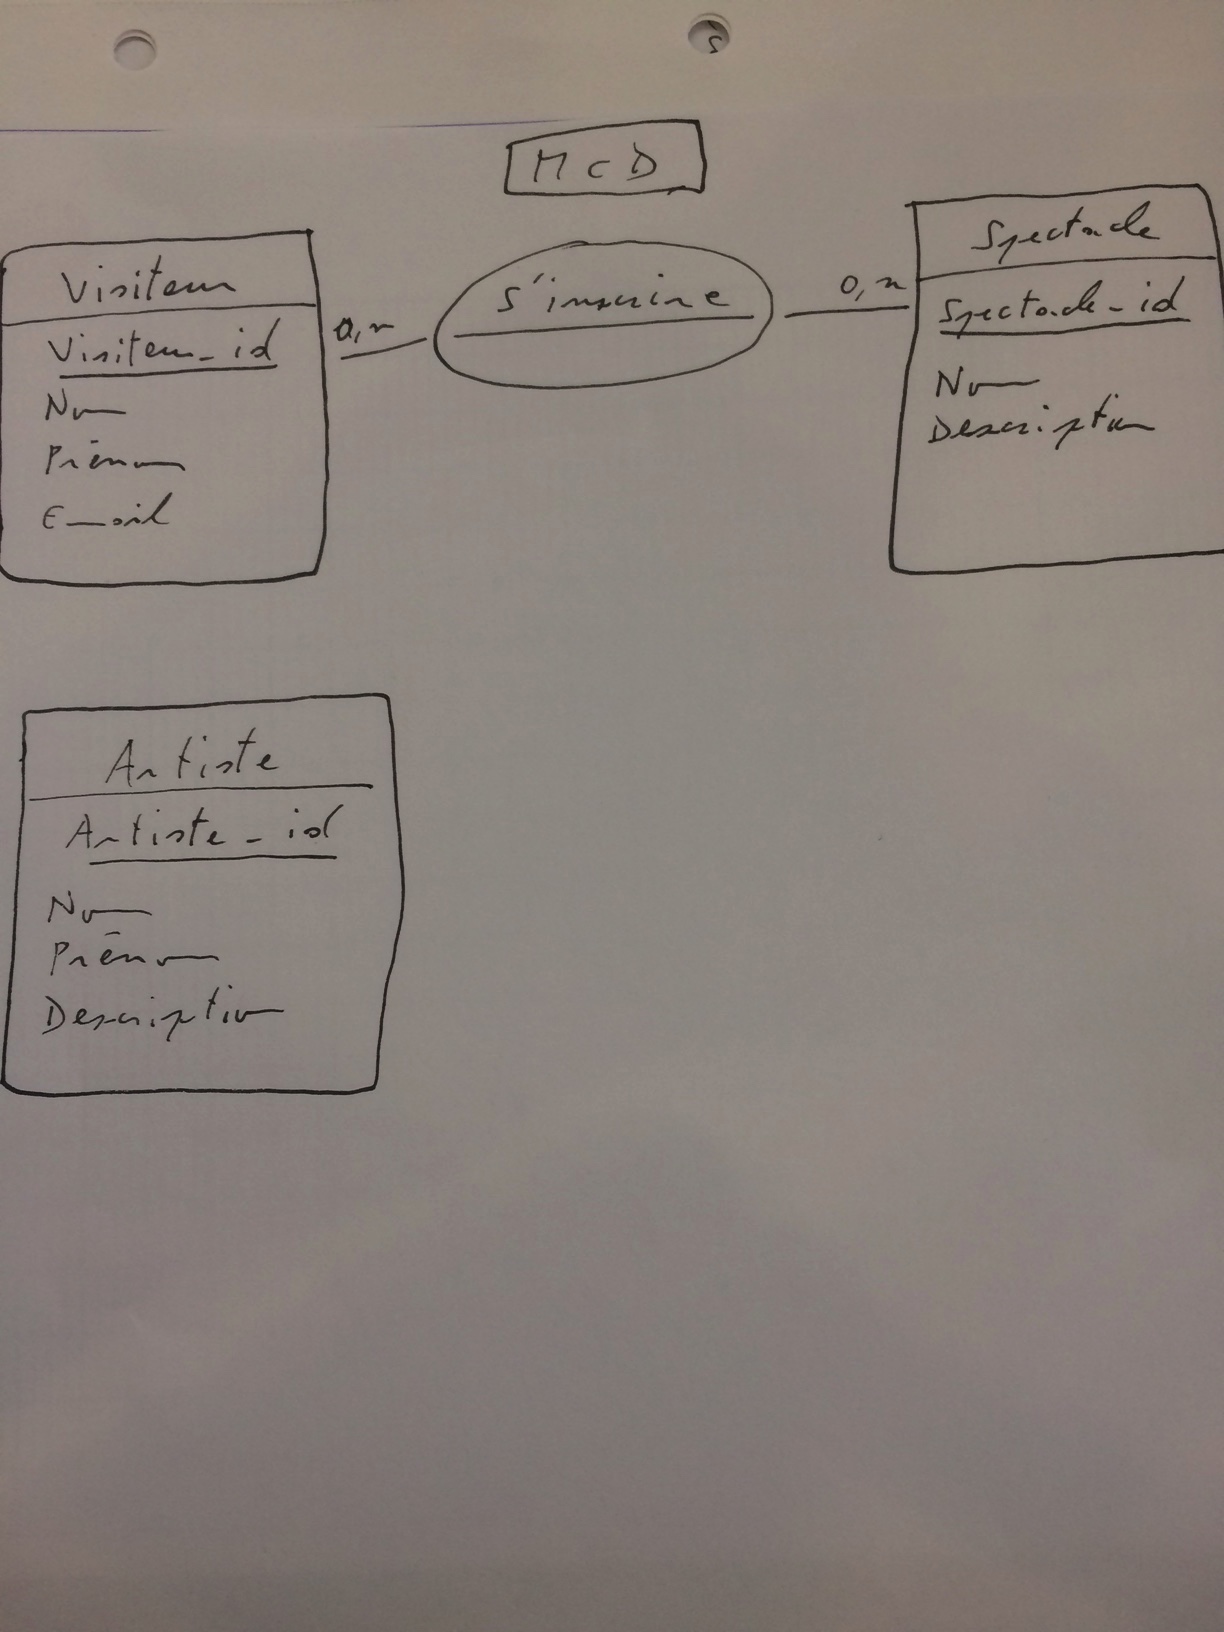 MCD
Visiteur
Visiteur_id
Nom
Prénom
Email
0,n
s'inscrire
0,n
Spectacle
Spectacle_id
Nom
Description
Artiste
Artiste_id
Nom
Prénom
Description